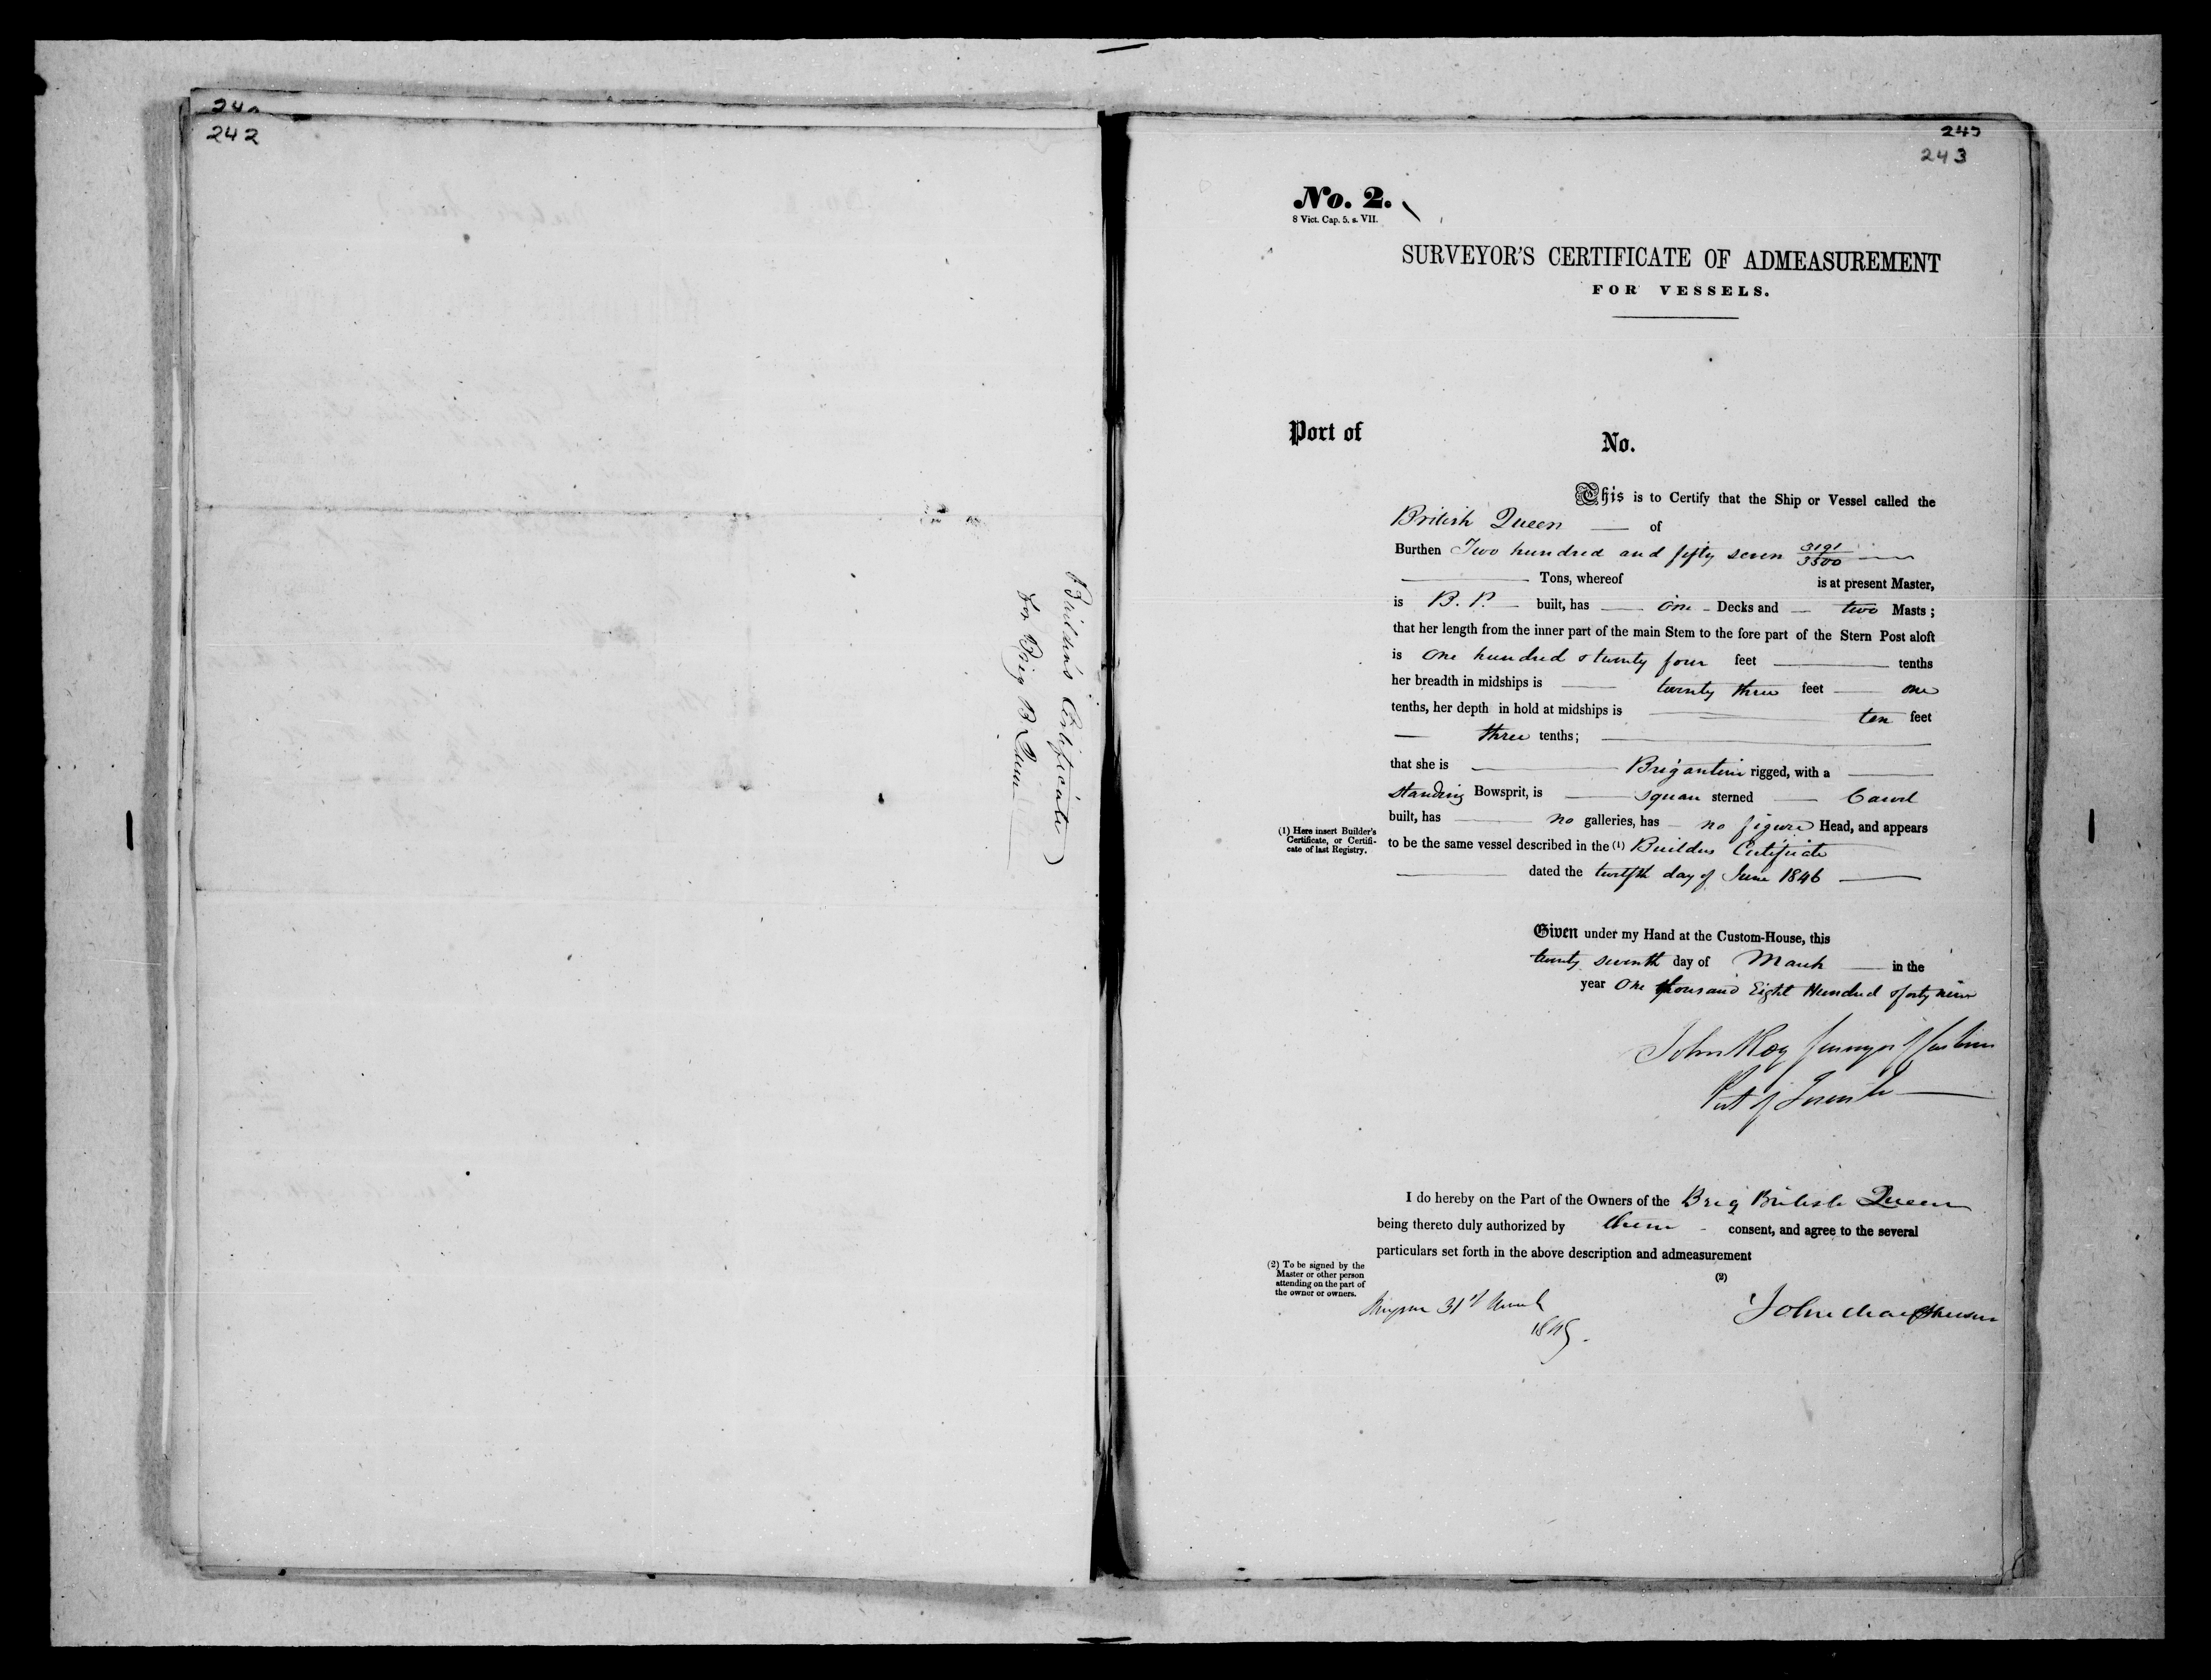 242
Builders Certificate
for Brig B Queen
243
No. 2.
8 Vict. Cap. 5. s. VII.
SURVEYOR'S CERTIFICATE OF ADMEASUREMENT
FOR VESSELS.
Port of
No.
This is to Certify that the Ship or Vessel called the
British Queen — of
Burthen Two hundred and fifty seven 3191/3500 —
— Tons, whereof is at present Master,
is B. P. — built, has — one – Decks and — two Masts;
that her length from the inner part of the main Stem to the fore part of the Stern Post aloft
is One hundred & twenty four feet — tenths
her breadth in midships is — twenty three feet — one
tenths, her depth in hold at midships is — ten feet
— three tenths; —
that she is — Brigantine rigged, with a —
standing Bowsprit, is — square sterned — Carvel
built, has — no galleries, has — no figure Head, and appears
(1) Here insert Builder's
Certificate, or Certifi-
cate of last Registry.
to be the same vessel described in the (1) Builders Certificate
— dated the twelfth day of June 1846 —
Given under my Hand at the Custom-House, this
twenty seventh day of March — in the
year One thousand Eight Hundred & forty nine
John Roy Surveyor of Customs
Port of Toronto —
I do hereby on the Part of the Owners of the Brig British Queen
being thereto duly authorized by them – consent, and agree to the several
particulars set forth in the above description and admeasurement
(2)
(2) To be signed by the
Master or other person
attending on the part of
the owner or owners.
31st March
1849.
John